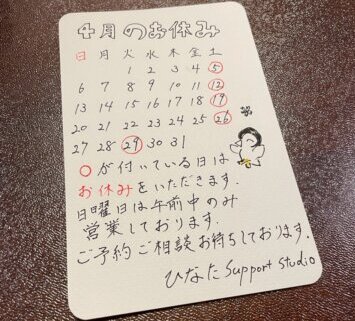 4月のお休み
日 月 火 水 木 金 土
1 2 3 4 5
6 7 8 9 10 11 12
13 14 15 16 17 18 19
20 21 22 23 24 25 26
27 28 29 30 31
○が付いている日は
お休みをいただきます.
日曜日は午前中のみ
営業しております.
ご予約ご相談お待ちしております.
ひなた Support Studio